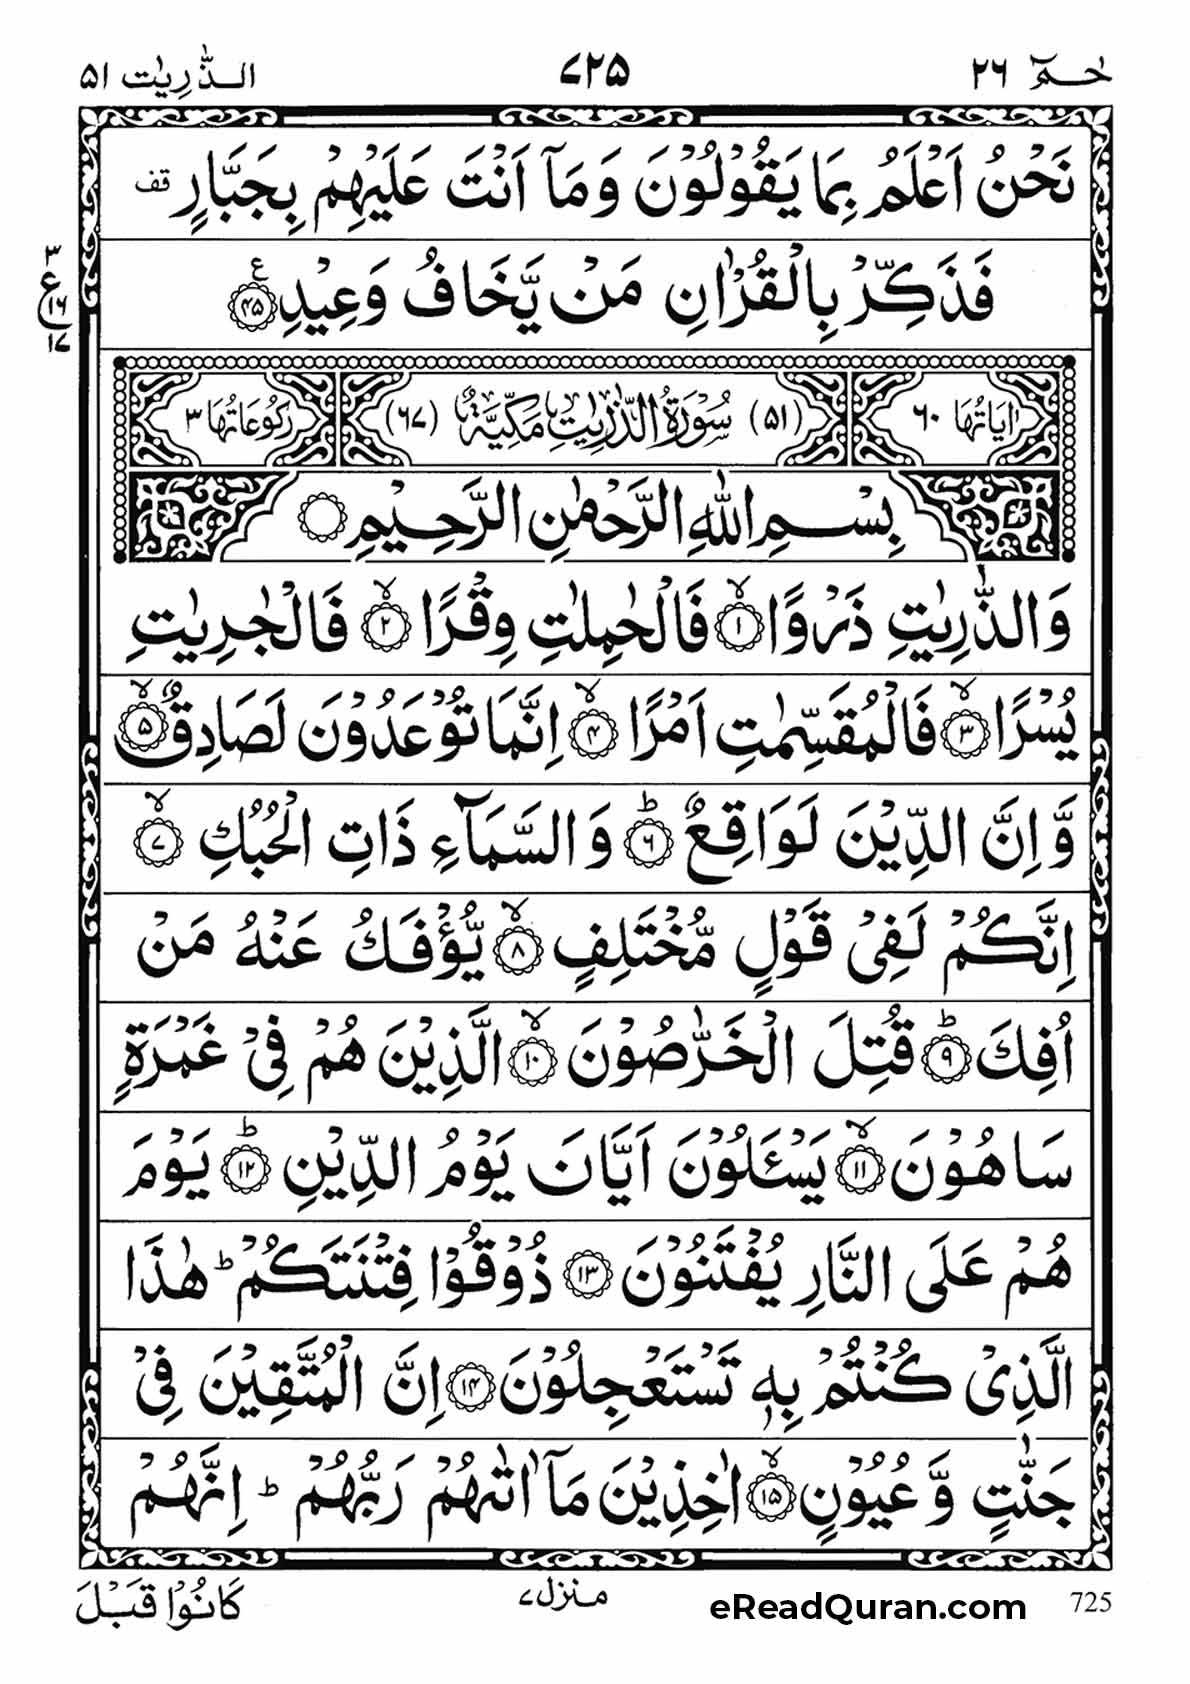 حٰـمٓ ٢٦
٧٢٥
الذّٰرِيٰت ٥١
نَحْنُ اَعْلَمُ بِمَا يَقُوْلُوْنَ وَمَاۤ اَنْتَ عَلَيْهِمْ بِجَبَّارٍ قف
فَذَكِّرْ بِالْقُرْاٰنِ مَنْ يَّخَافُ وَعِيْدِ ع ٤٥
٣
ع
١٦
١٧
اٰيَاتُهَا ٦٠
(٥١) سُوْرَةُ الذّٰرِيٰتِ مَكِّيَّةٌ (٦٧)
رُكُوْعَاتُهَا ٣
بِسْمِ اللّٰهِ الرَّحْمٰنِ الرَّحِيْمِ
وَالذّٰرِيٰتِ ذَرْوًا ۙ ١ فَالْحٰمِلٰتِ وِقْرًا ۙ ٢ فَالْجٰرِيٰتِ
يُسْرًا ۙ ٣ فَالْمُقَسِّمٰتِ اَمْرًا ۙ ٤ اِنَّمَا تُوْعَدُوْنَ لَصَادِقٌ ۙ ٥
وَّاِنَّ الدِّيْنَ لَوَاقِعٌ ؕ ٦ وَالسَّمَآءِ ذَاتِ الْحُبُكِ ۙ ٧
اِنَّكُمْ لَفِيْ قَوْلٍ مُّخْتَلِفٍ ۙ ٨ يُّؤْفَكُ عَنْهُ مَنْ
اُفِكَ ؕ ٩ قُتِلَ الْخَرّٰصُوْنَ ۙ ١٠ الَّذِيْنَ هُمْ فِيْ غَمْرَةٍ
سَاهُوْنَ ۙ ١١ يَسْـَٔلُوْنَ اَيَّانَ يَوْمُ الدِّيْنِ ؕ ١٢ يَوْمَ
هُمْ عَلَى النَّارِ يُفْتَنُوْنَ ١٣ ذُوْقُوْا فِتْنَتَكُمْ ؕ هٰذَا
الَّذِيْ كُنْتُمْ بِهٖ تَسْتَعْجِلُوْنَ ١٤ اِنَّ الْمُتَّقِيْنَ فِيْ
جَنّٰتٍ وَّعُيُوْنٍ ۙ ١٥ اٰخِذِيْنَ مَاۤ اٰتٰىهُمْ رَبُّهُمْ ؕ اِنَّهُمْ
كَانُوْا قَبْلَ
منزل ٧
eReadQuran.com
725